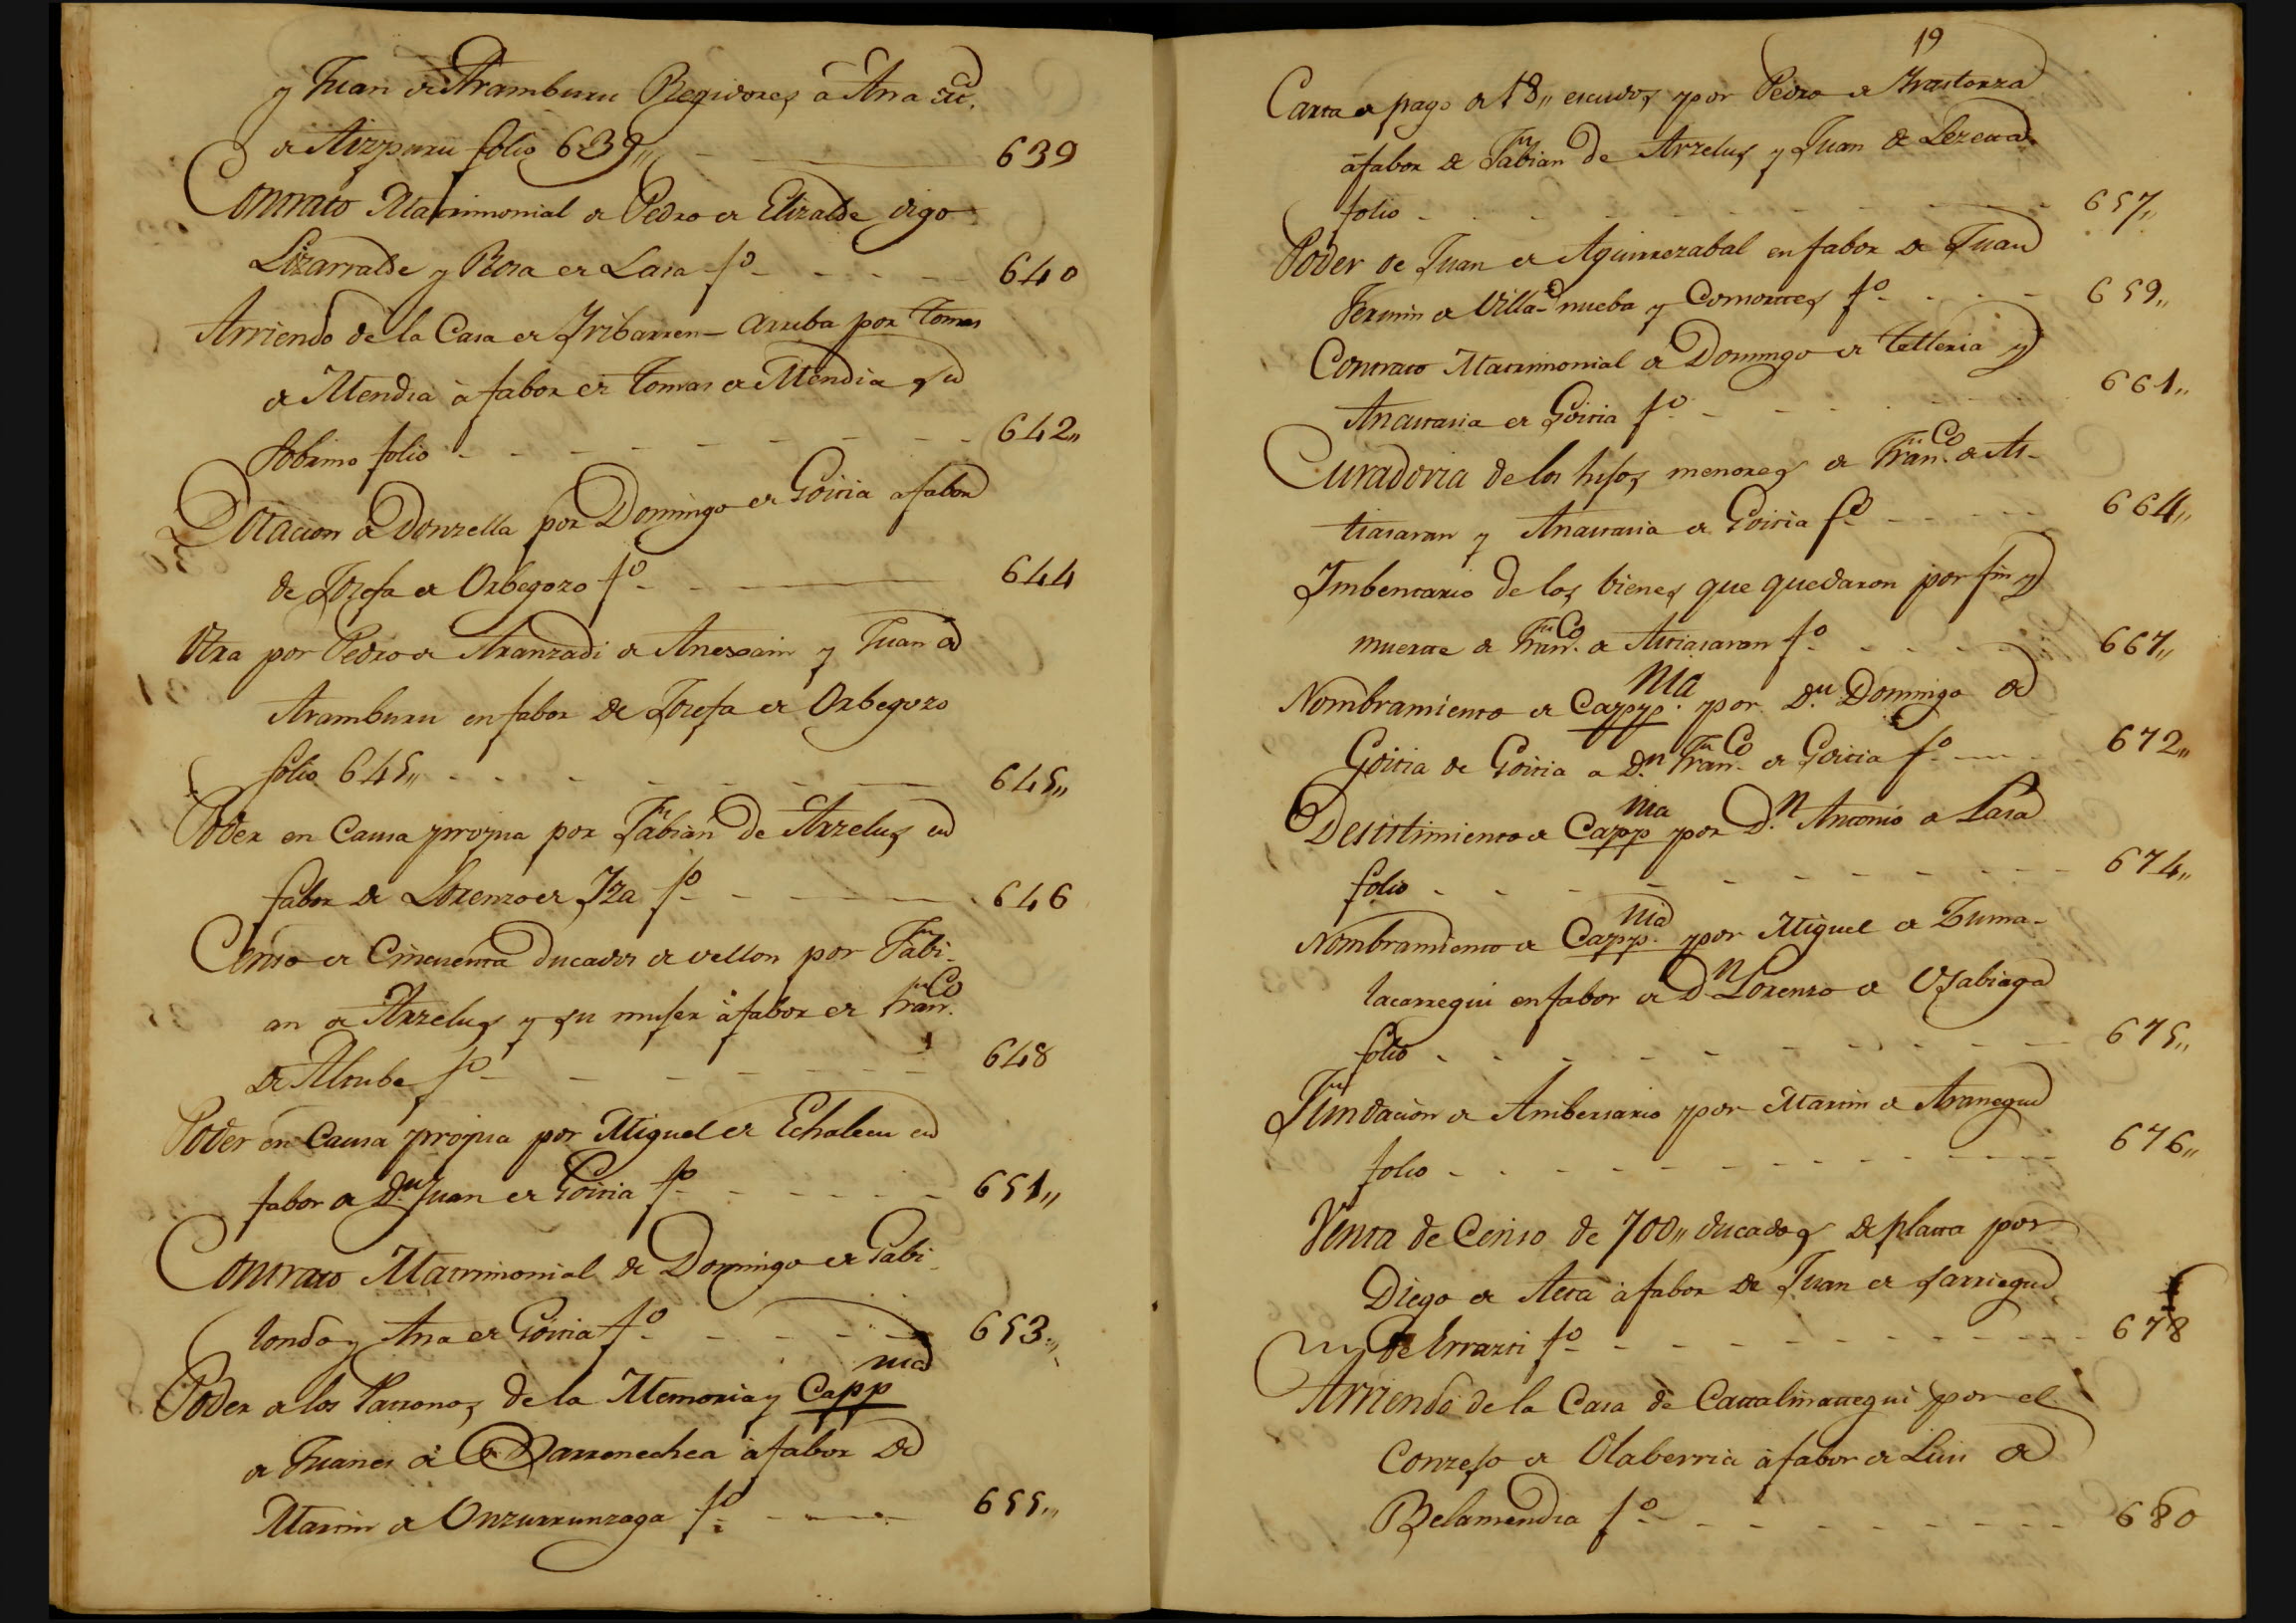 y Juan de Aramburu Regidores â Ana
de Aizpuru folio 639,, 639
Contrato Matrimonial de Pedro de Elizalde digo
Lizarralde y Rosa de Lasa fº 640
Arriendo de la Casa de Yribarren-arriba por Tomas
de Mendia à fabor de Tomas de Mendia su
sobrino folio 642,,
Dotacion de Donzella por Domingo de Goitia a fabor
de Josefa de Orbegozo fº 644
Otra por Pedro de Aranzadi de Anexsain y Juan de
Aramburu en fabor de Josefa de Orbegozo
folio 645,, 645,,
Poder en Causa propia por Fabian de Arzelus en
fabor de Lorenzo de Yza fº 646
Censo de Cincuenta ducados de vellon por Fabi-
an de Arzelus y su muser à fabor de Franco.
de Alsube fº 648
Poder en Causa propia por Miguel de Echalecu en
fabor de Dn. Juan de Goitia fº 651,,
Contrato Matrimonial de Domingo de Gabi-
londo y Ana de Goitia fº 653,,
Poder de los Patronos de la Memoria y Cappnia
de Juanes de Barrenechea à fabor de
Martin de Unzurrunzaga fº 655,,
19
Carta de pago de 18,, escudos por Pedro de Yrastorza
à fabor de Fabian de Arzelus y Juan de Lezeta
folio 657,,
Poder de Juan de Aguirrezabal en fabor de Juan
Fermin de Villa-nueba y Comortes fº 659,,
Contrato Matrimonial de Domingo de Telleria y
Anastasia de Goitia fº 661,,
Curadoria de los hisos menores de Franco. de As-
tiasaran y Anastasia de Goitia fº 664,,
Ymbentario de los bienes que quedaron por fin y
muerte de Franco. de Astiasaran fº 667,,
Nombramiento de Cappnia. por Dn. Domingo de
Goitia de Goitia a Dn. Franco. de Goitia fº 672,,
Desistimiento de Cappnia por Dn. Antonio de Lasa
folio 674,,
Nombramiento de Cappnia. por Miguel de Zuma-
lacarregui en fabor de Dn Lorenzo de Usabiaga
folio 675,,
Fundacion de Anibersario por Martin de Aranegui
folio 676,,
Venta de Censo de 700,, ducados de plata por
Diego de Aeta à fabor de Juan de Sarriegui
de Errazti fº 678
Arriendo de la Casa de Cattalinattegui por el
Conzeso de Olaberria à fabor de Luis de
Belamendia fº 680